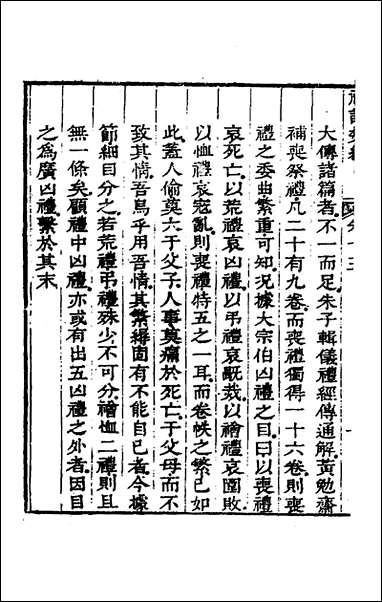 大傳諸篇者不一而足朱子輯儀禮經傳通解黃勉齋
補喪祭禮凡二十有九卷而喪禮獨得一十六卷則喪
禮之委曲繁重可知況據大宗伯凶禮之目曰以喪禮
哀死亡以荒禮哀凶禮以弔禮哀烖以禬禮哀圍敗
以恤禮哀寇亂則喪禮特五之一耳而卷帙之繁已如
此蓋人倫莫大于父子人事莫痛於死亡于父母而不
致其情吾烏乎用吾情其繁縟固有不能自已者今據
節細目分之若荒禮弔禮殊少不可分禬恤二禮則且
無一條矣顧禮中凶禮亦或有出五凶禮之外者因目
之為廣凶禮繫於其末